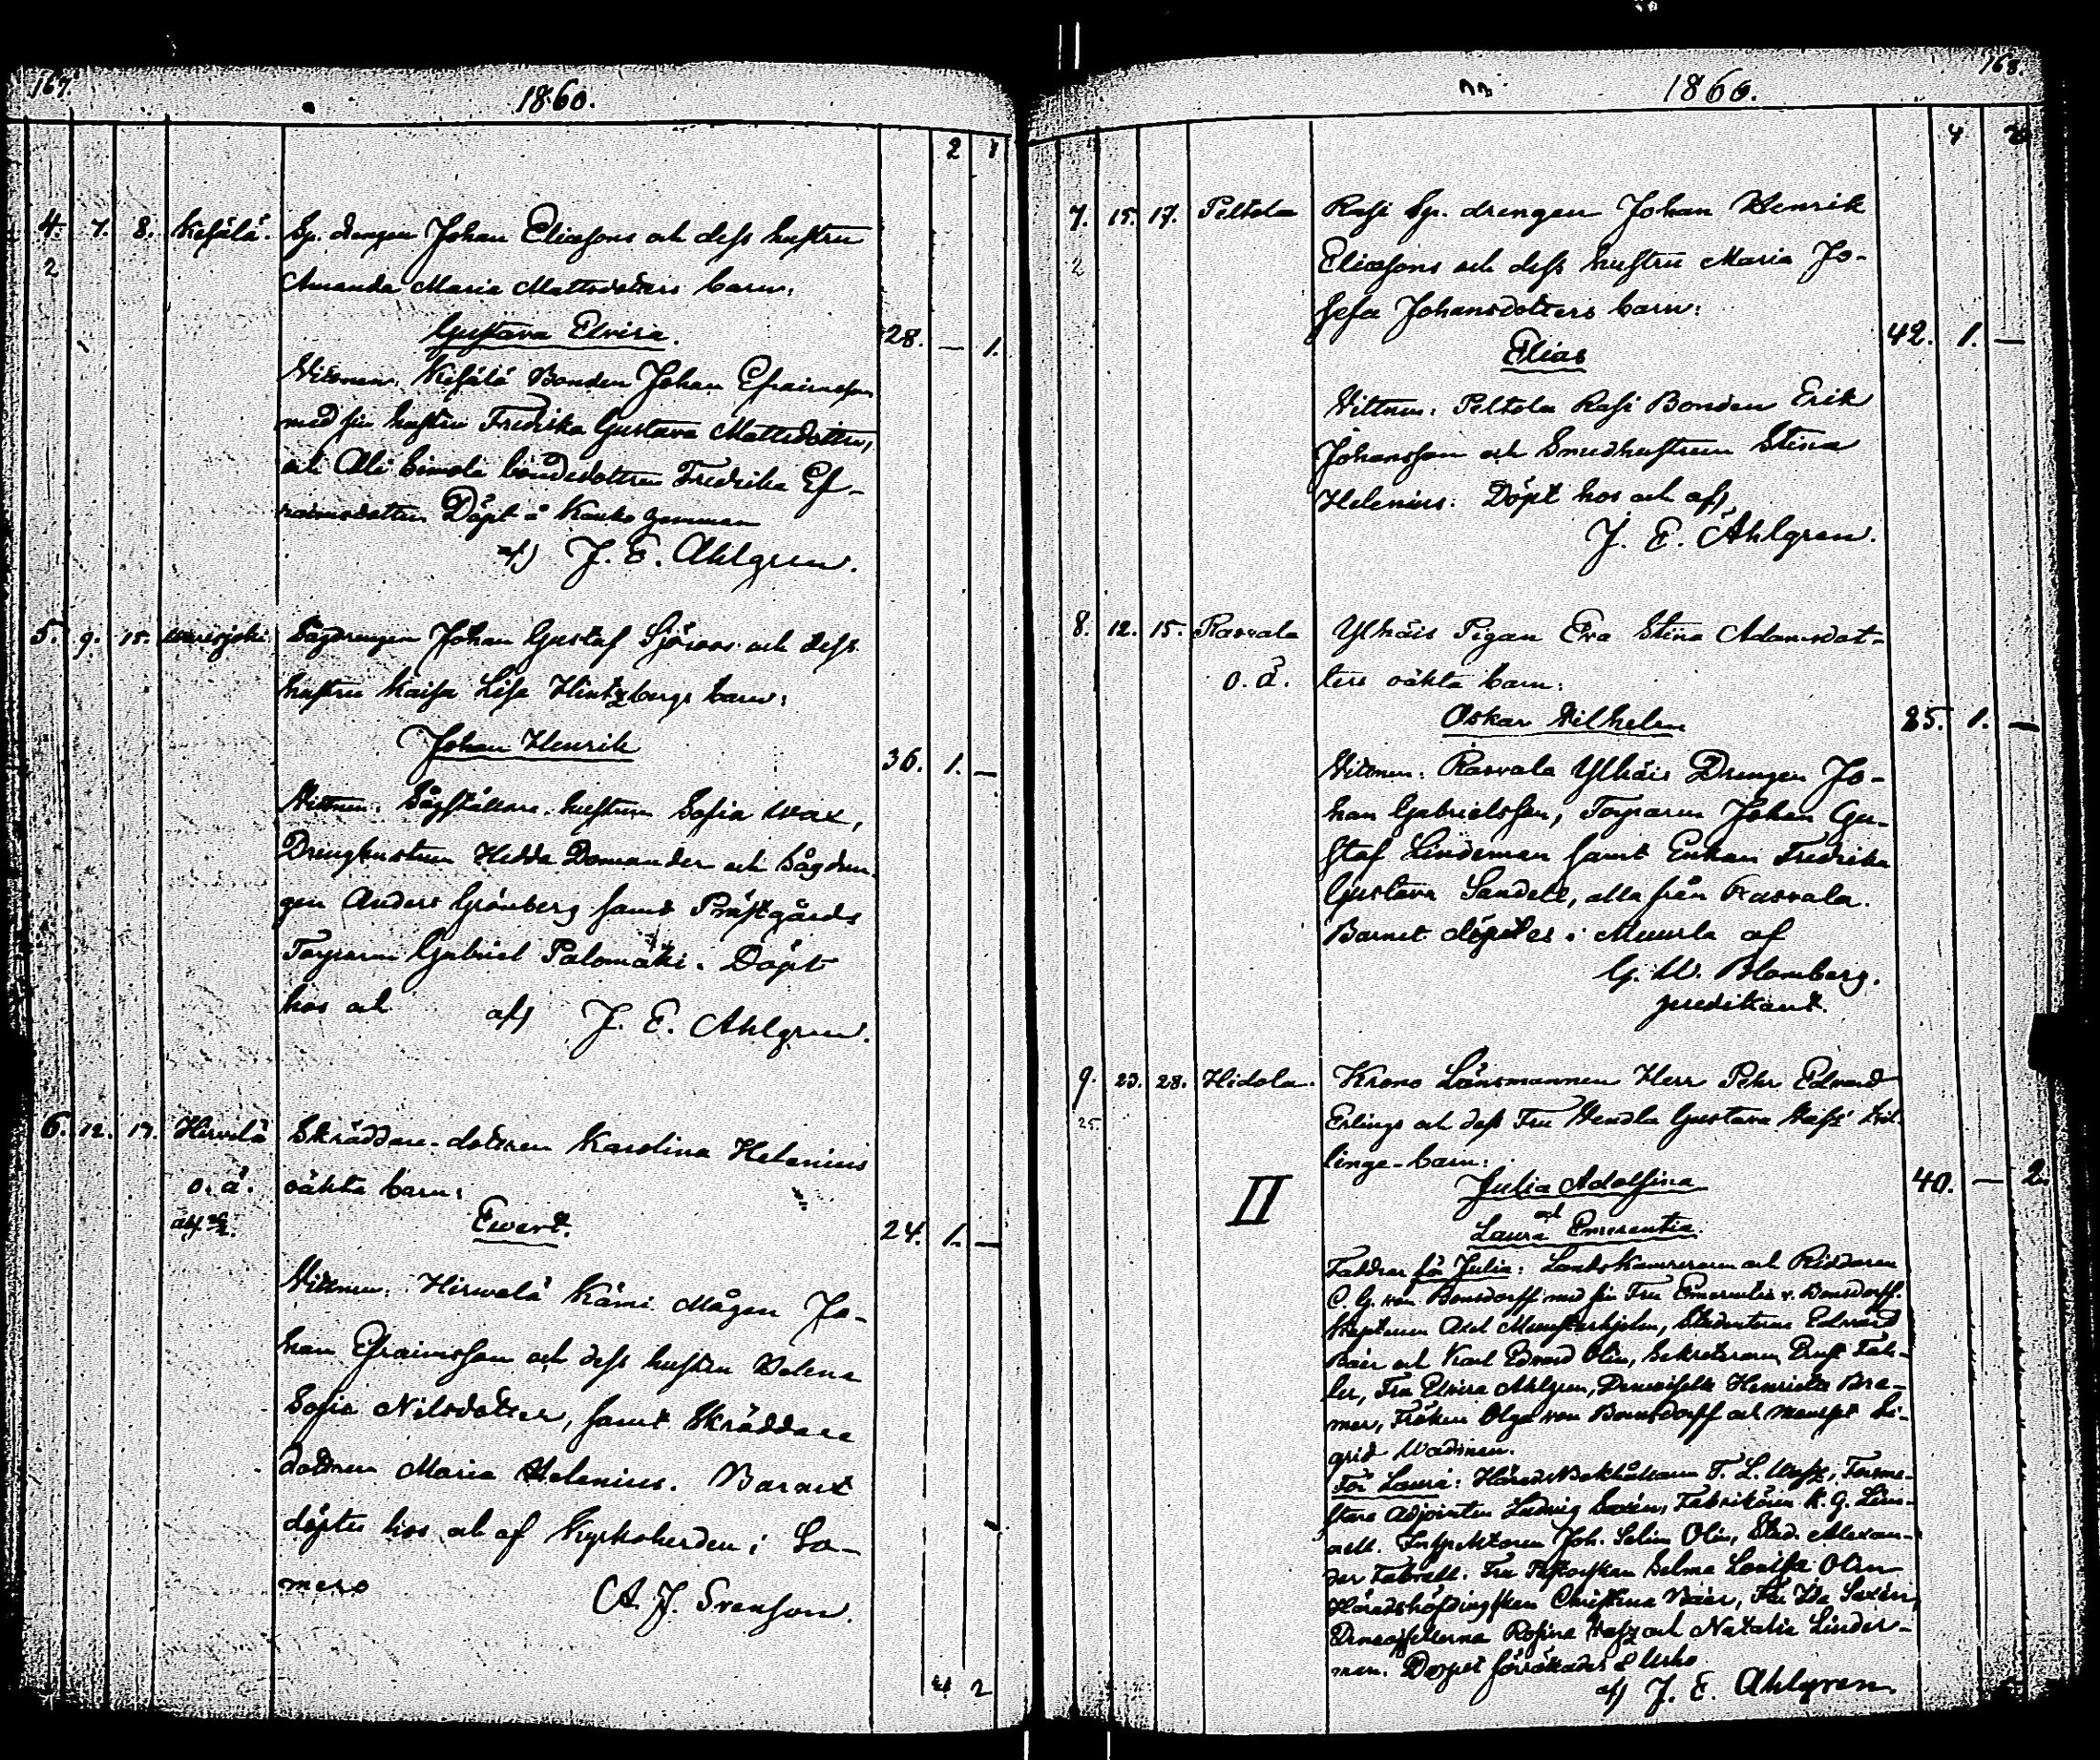 167.
1860.
2 1
4. 7. 8. Kesälä. Sp. drengen Johan Eliæsons och dess hustru
2 Amanda Maria Mattsdotters barn:
Gustava Elvira. 28. — 1.
Vittnen: Kesälä Bonden Johan Efraimsson
med sin hustru Fredrika Gustava Mattsdotter,
och Ali bondedottren Fredrika Ef-
raimsdotter Döpt å
af) J. E. Ahlgren.
5. 9. 15. Sågdrengen Johan Gustaf Sjöroos och dess
hustru Kaisa Lisa Hintzbergs barn:
Johan Henrik 36. 1. —
Vittnen: Sågställare hustrun Sofia Wax,
Drenghustrun Hedda Domander och Sågdren-
gen Anders Grönberg samt Prästgårds
Torparen Gabriel Palomäki. Döpt
hos och af) J. E. Ahlgren.
6. 12. 17. Hirvelä Skräddare-dottren Karolina Helenius
o. ä. oäkta barn:
Evert. 24. 1. —
Vittnen: Hirvelä Kämi Mågen Jo-
han Efraimsson och dess hustru Helena
Sofia Nilsdotter, samt Skräddare
dottren Maria Helenius. Barnet
döptes hos och af Kyrkoherden i So-
mero A. J. Svenson.
4 2
168.
1860.
4 2
7. 15. 17. Peltola Rasi Sp. drengen Johan Henrik
2 Eliæsons och dess hustru Maria Jo-
sefa Johansdotters barn:
Elias 42. 1. —
Vittnen: Peltola Rasi Bonden Erik
Johansson och Smedhustrun Stina
Helenius. Döpt hos och af)
J. E. Ahlgren.
8. 12. 15. Rasvala Ylhäis Pigan Eva Stina Adamsdot-
o. ä. ters oäkta barn:
Oskar Vilhelm 25. 1. —
Vittnen: Rasvala Ylhäis Drengen Jo-
han Gabrielsson, Torparen Johan Gu-
staf Lindeman samt Enkan Fredrika
Gustava Sandell, alla från Rasvala.
Barnet döptes i Muurla af
G. W. Blomberg.
predikant.
9. 23. 28. Hidola. Krono Länsmannen Herr Pehr Edvard
25. Erlings och dess Fru Hendla Gustava
linge-barn:
II Julia Adolfina 40. — 2.
och
Laura Emerentia.
Faddrar för Julia: Landskamreraren och Riddaren
C. G. von Bonsdorff med sin Fru Emerentia v. Bonsdorff.
Kaptenen Axel Munsterhjelm, Studenterna Edvard
Bäer och Karl Edvard Olin, Sekreteraren Ernst Fal-
ler, Fru Elvira Ahlgren, Demoiselle Henriette Bre-
mer, Fröken Olga von Bonsdorff och Mamsell Si-
grid Wadsman.
För Laura: HäradsBokhållaren T. L. Forstme-
stare Adjointen Ludvig Saxén, Fabrikören K. G. Lin-
dell. Inspektoren Joh. Selim Olin, Stud. Alexan-
der Fabrell. Fru Pastorskan Selma Lovisa Olin
Häradshöfdingskan Christina Bäer, Fru Ida Saxén,
Demoisellerna Rosina och Natalia Linder-
man. Dopet förrättades å
af) J. E. Ahlgren.